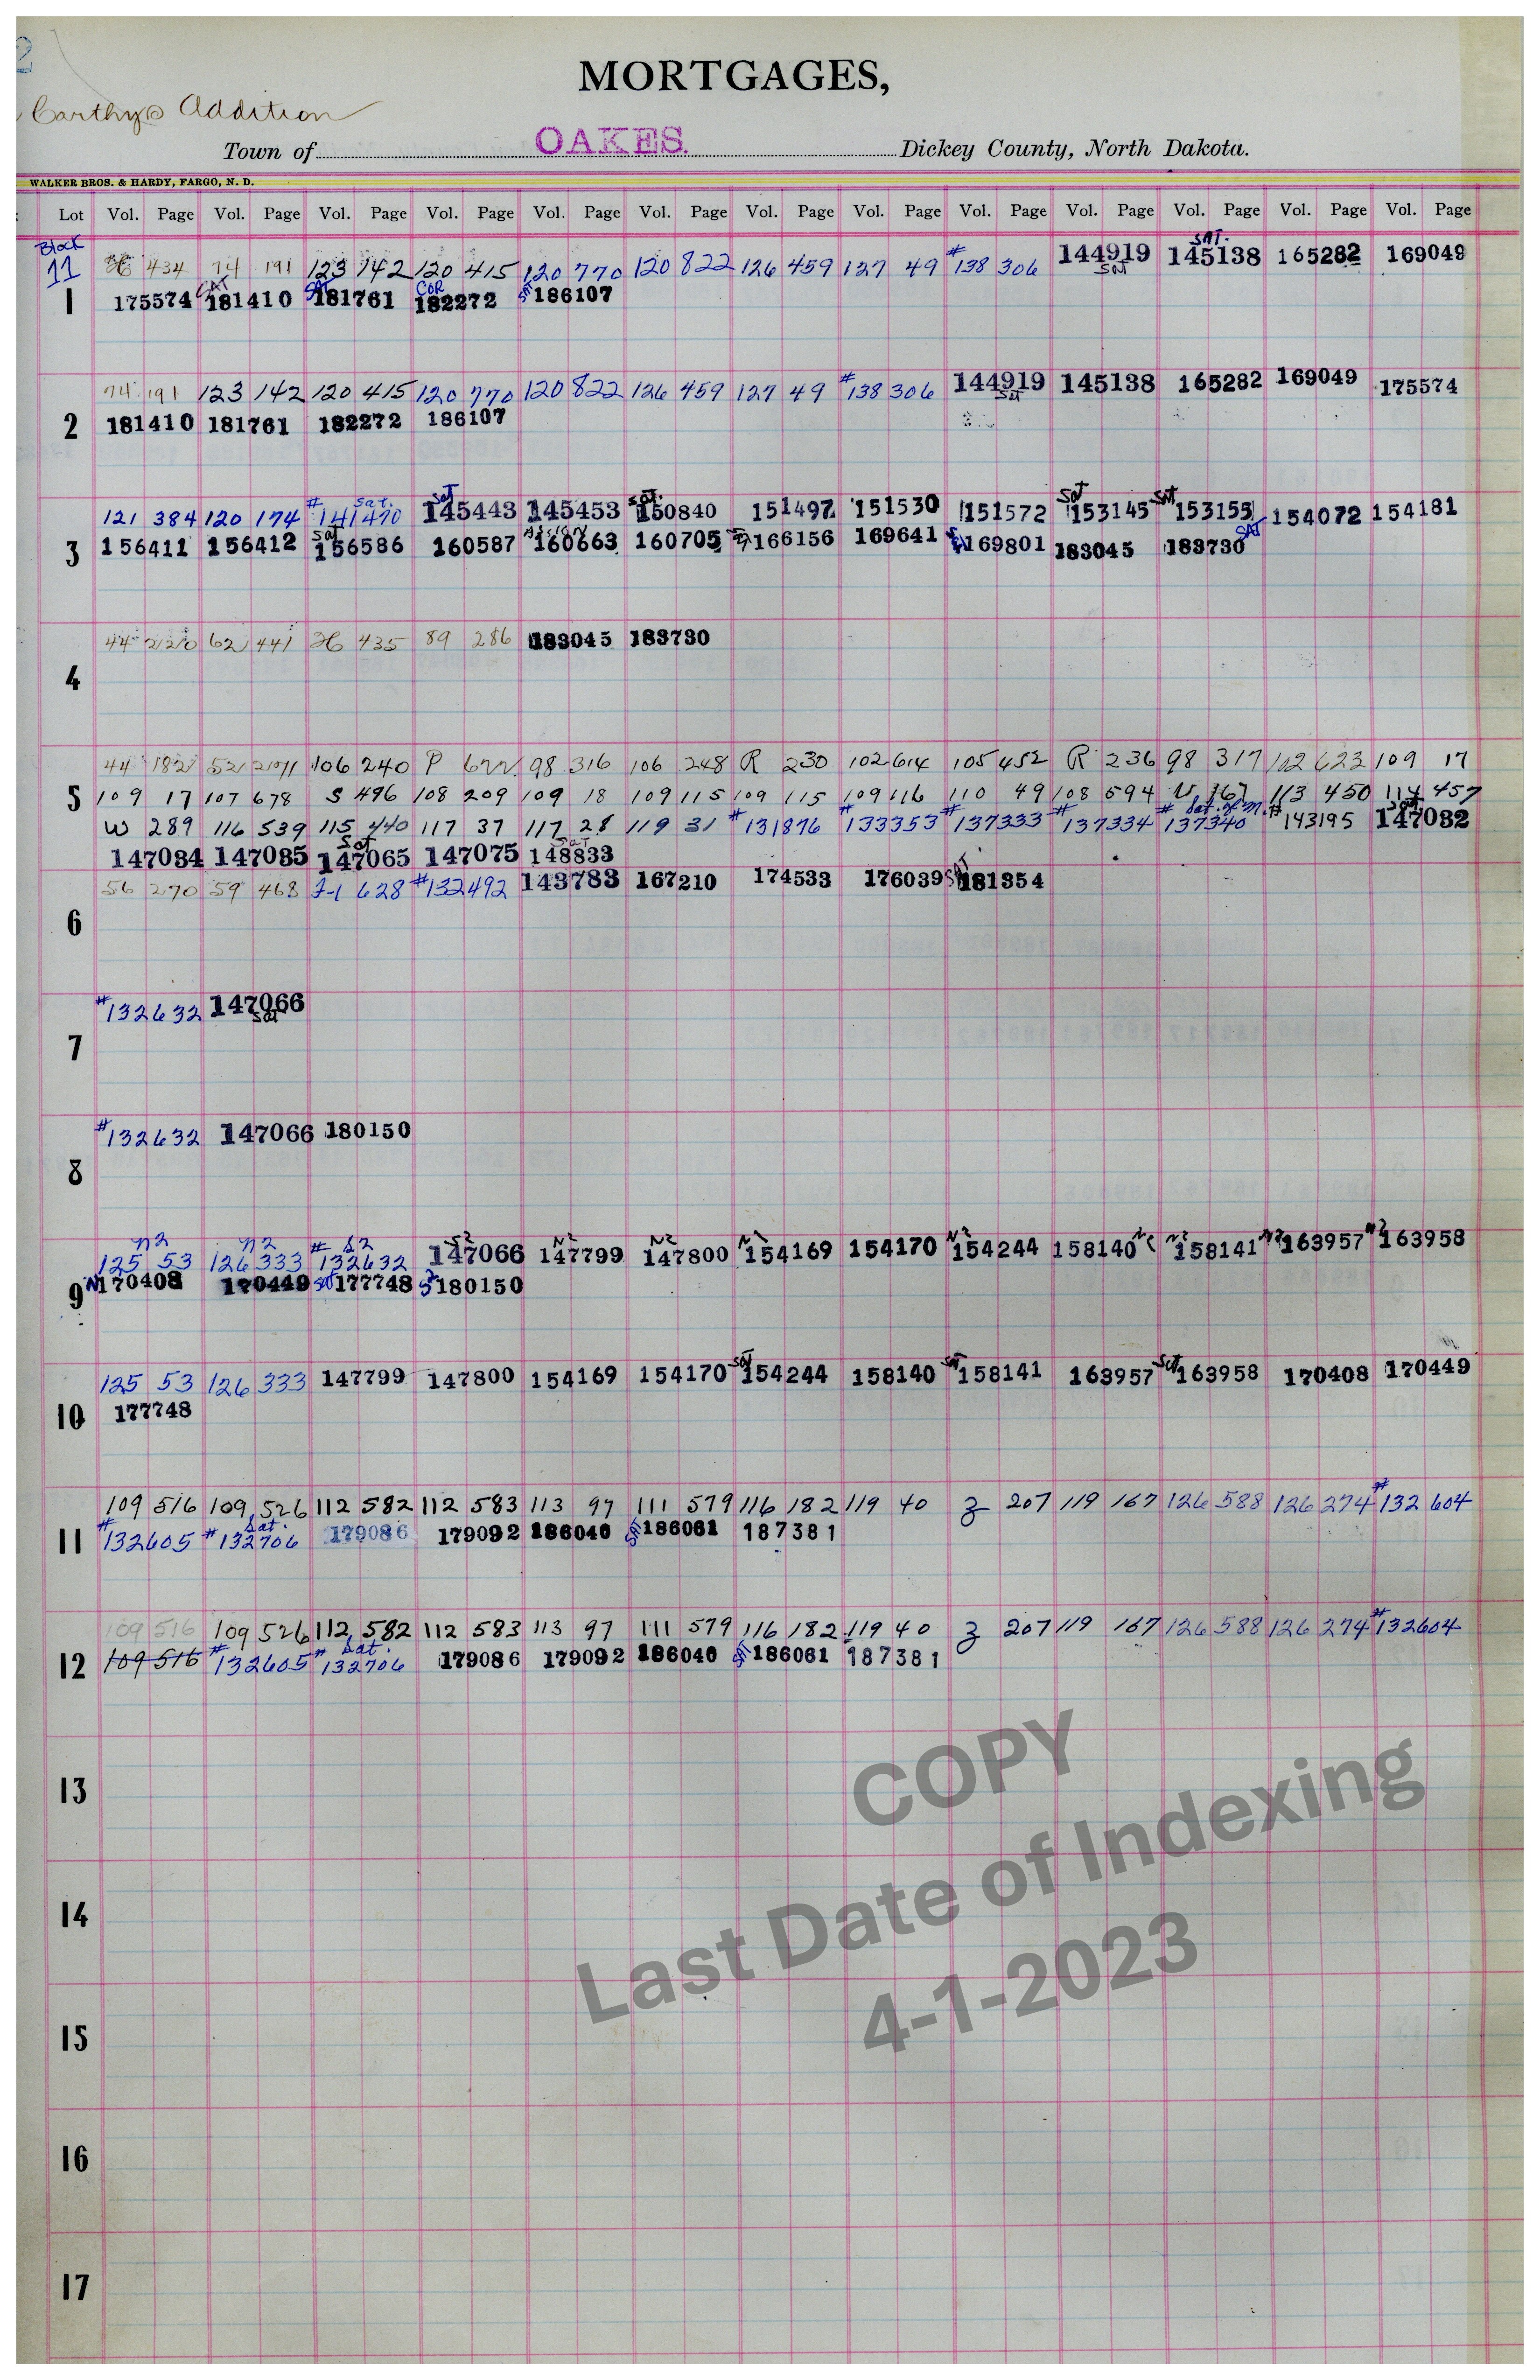 MORTGAGES,
Carthys Addition
OAKES.
Town of Dickey County, North Dakota.
WALKER BROS. & HARDY, FARGO, N. D.
Lot Vol. Page Vol. Page Vol. Page Vol. Page Vol. Page Vol. Page Vol. Page Vol. Page Vol. Page Vol. Page Vol. Page Vol. Page Vol. Page
Block SAT.
11 434 74 191 123 142 120 415 120 770 120 822 126 459 127 49 #138 306 144919 145138 165282 169049
Sat
SAT COR
1 175574 181410 181761 182272 186107
74 191 123 142 120 415 120 770 120 822 126 459 127 49 #138 306 144919 145138 165282 169049 175574
Sat
2 181410 181761 182272 186107
# Sat. Sat Sat. Sat Sat
121 384 120 174 141470 145443 145453 150840 151497 151530 151572 153145 153155 154072 154181
Sat Assign SAT
3 156411 156412 156586 160587 160663 160705 166156 169641 169801 183045 183730
44 220 62 441 435 89 286 183045 183730
4
44 182 52 106 240 P 622 98 316 106 248 R 230 102 614 105 452 R 236 98 317 102 623 109 17
5 109 17 107 678 S 496 108 209 109 18 109 115 109 115 109 116 110 49 108 594 U 167 113 450 114 457
W 289 116 539 115 440 117 37 117 28 119 31 #131876 #133353 #137333 #137334 #137340 Sat. of M. #143195 147032
Sat Sat
147034 147035 147065 147075 148833
56 270 59 468 J-1 628 #132492 143783 167210 174533 176039 SAT 181354
6
#132632 147066
Sat
7
#132632 147066 180150
8
N2 N2 # S2 S2 N2 N2 N2 N2 N2 N2 N2 N2
125 53 126 333 132632 147066 147799 147800 154169 154170 154244 158140 158141 163957 163958
9 N 170408 170449 Sat 177748 S2 180150
125 53 126 333 147799 147800 154169 154170 Sat 154244 158140 Sat 158141 163957 Sat 163958 170408 170449
10 177748
109 516 109 526 112 582 112 583 113 97 111 579 116 182 119 40 Z 207 119 167 126 588 126 274 #132604
Sat.
11 #132605 #132706 179086 179092 186040 186061 187381
109 516 109 526 112 582 112 583 113 97 111 579 116 182 119 40 Z 207 119 167 126 588 126 274 #132604
Sat.
12 109 516 #132605 #132706 179086 179092 186040 186061 187381
13
14
15
16
17
COPY
Last Date of Indexing
4-1-2023